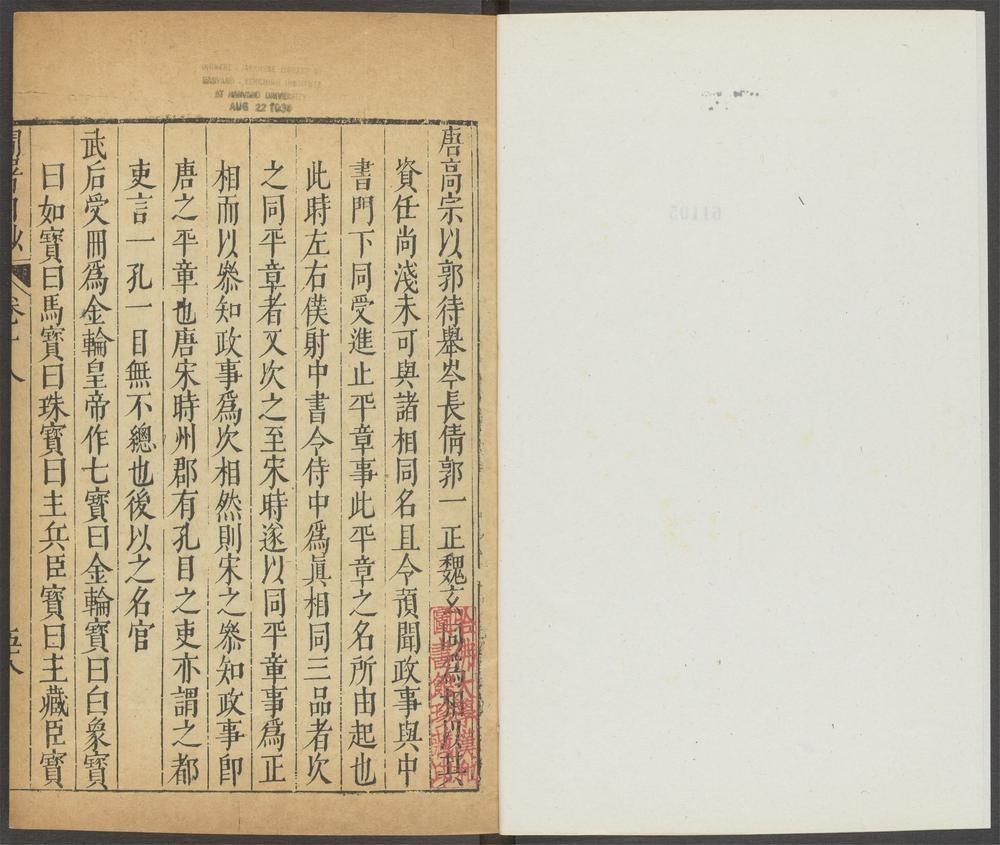 唐高宗以郭待舉岑長倩郭一正魏玄同爲相以其
資任尚淺未可與諸相同名且令預聞政事與中
書門下同受進止平章事此平章之名所由起也
此時左右僕射中書令侍中爲眞相同三品者次
之同平章者又次之至宋時遂以同平章事爲正
相而以叅知政事爲次相然則宋之叅知政事卽
唐之平章也唐宋時州郡有孔目之吏亦謂之都
吏言一孔一目無不總也後以之名官
武后受冊爲金輪皇帝作七寶曰金輪寶曰白象寶
曰如寶曰馬寶曰珠寶曰主兵臣寶曰主藏臣寶
卷十八
五八
哈佛大學漢和
圖書館珍藏印
AT HARVARD UNIVERSITY
AUG 22 1934
61105